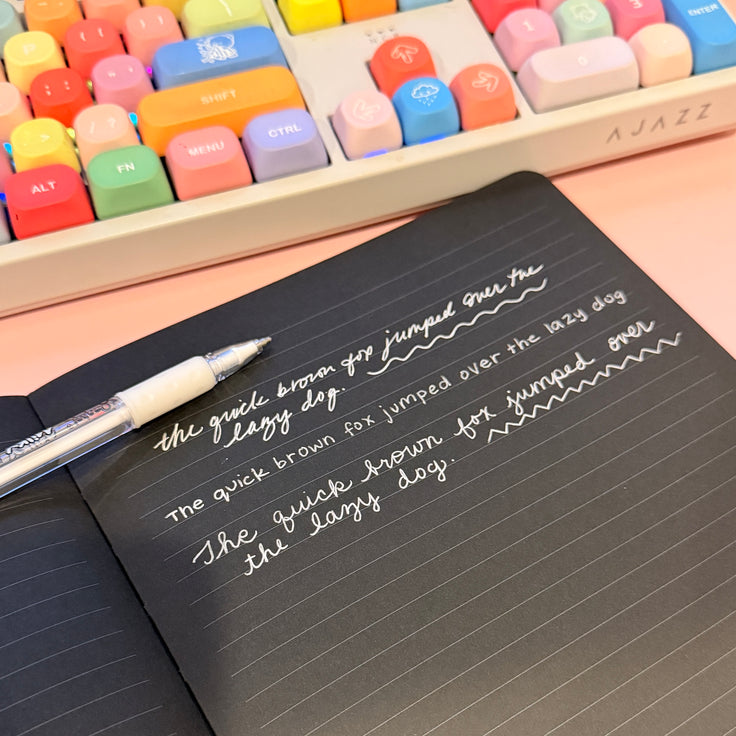 P
: ;
" '
SHIFT
? /
ALT
FN
MENU
CTRL
1
3
0
ENTER
AJAZZ
the quick brown fox jumped over the
lazy dog.
The quick brown fox jumped over the lazy dog
The quick brown fox jumped over
the lazy dog.